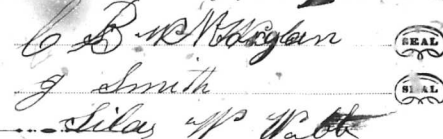 C B McKorglan SEAL
J Smith SEAL
Silas W Wabb